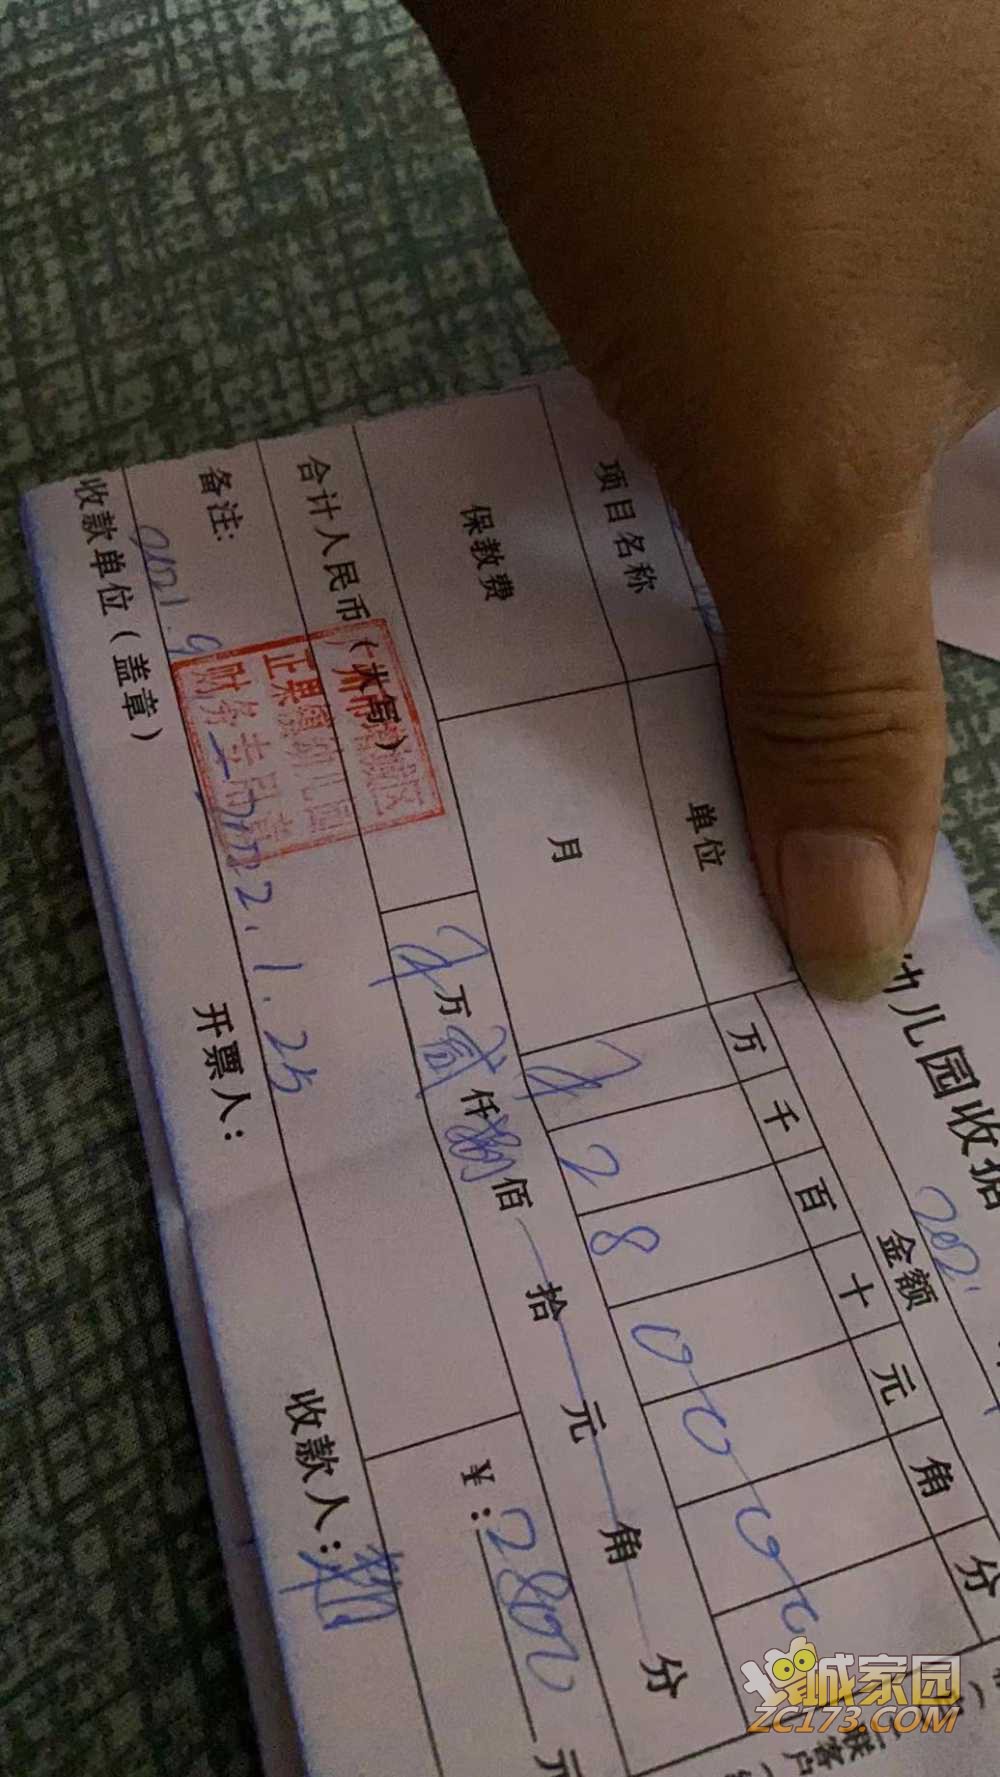 幼儿园收据
202
项目名称 单位 金额
万 千 百 十 元 角 分
保教费 月 2 8 0 0 0 0
合计人民币(大写) 万 贰 仟 捌 佰 拾 元 角 分 ¥:2800 元
备注: 2021.9 — 2022.1.25
广州市增城区
正果 幼儿园
财务专用章
收款单位(盖章) 开票人: 收款人:
诚家园
ZC173.COM